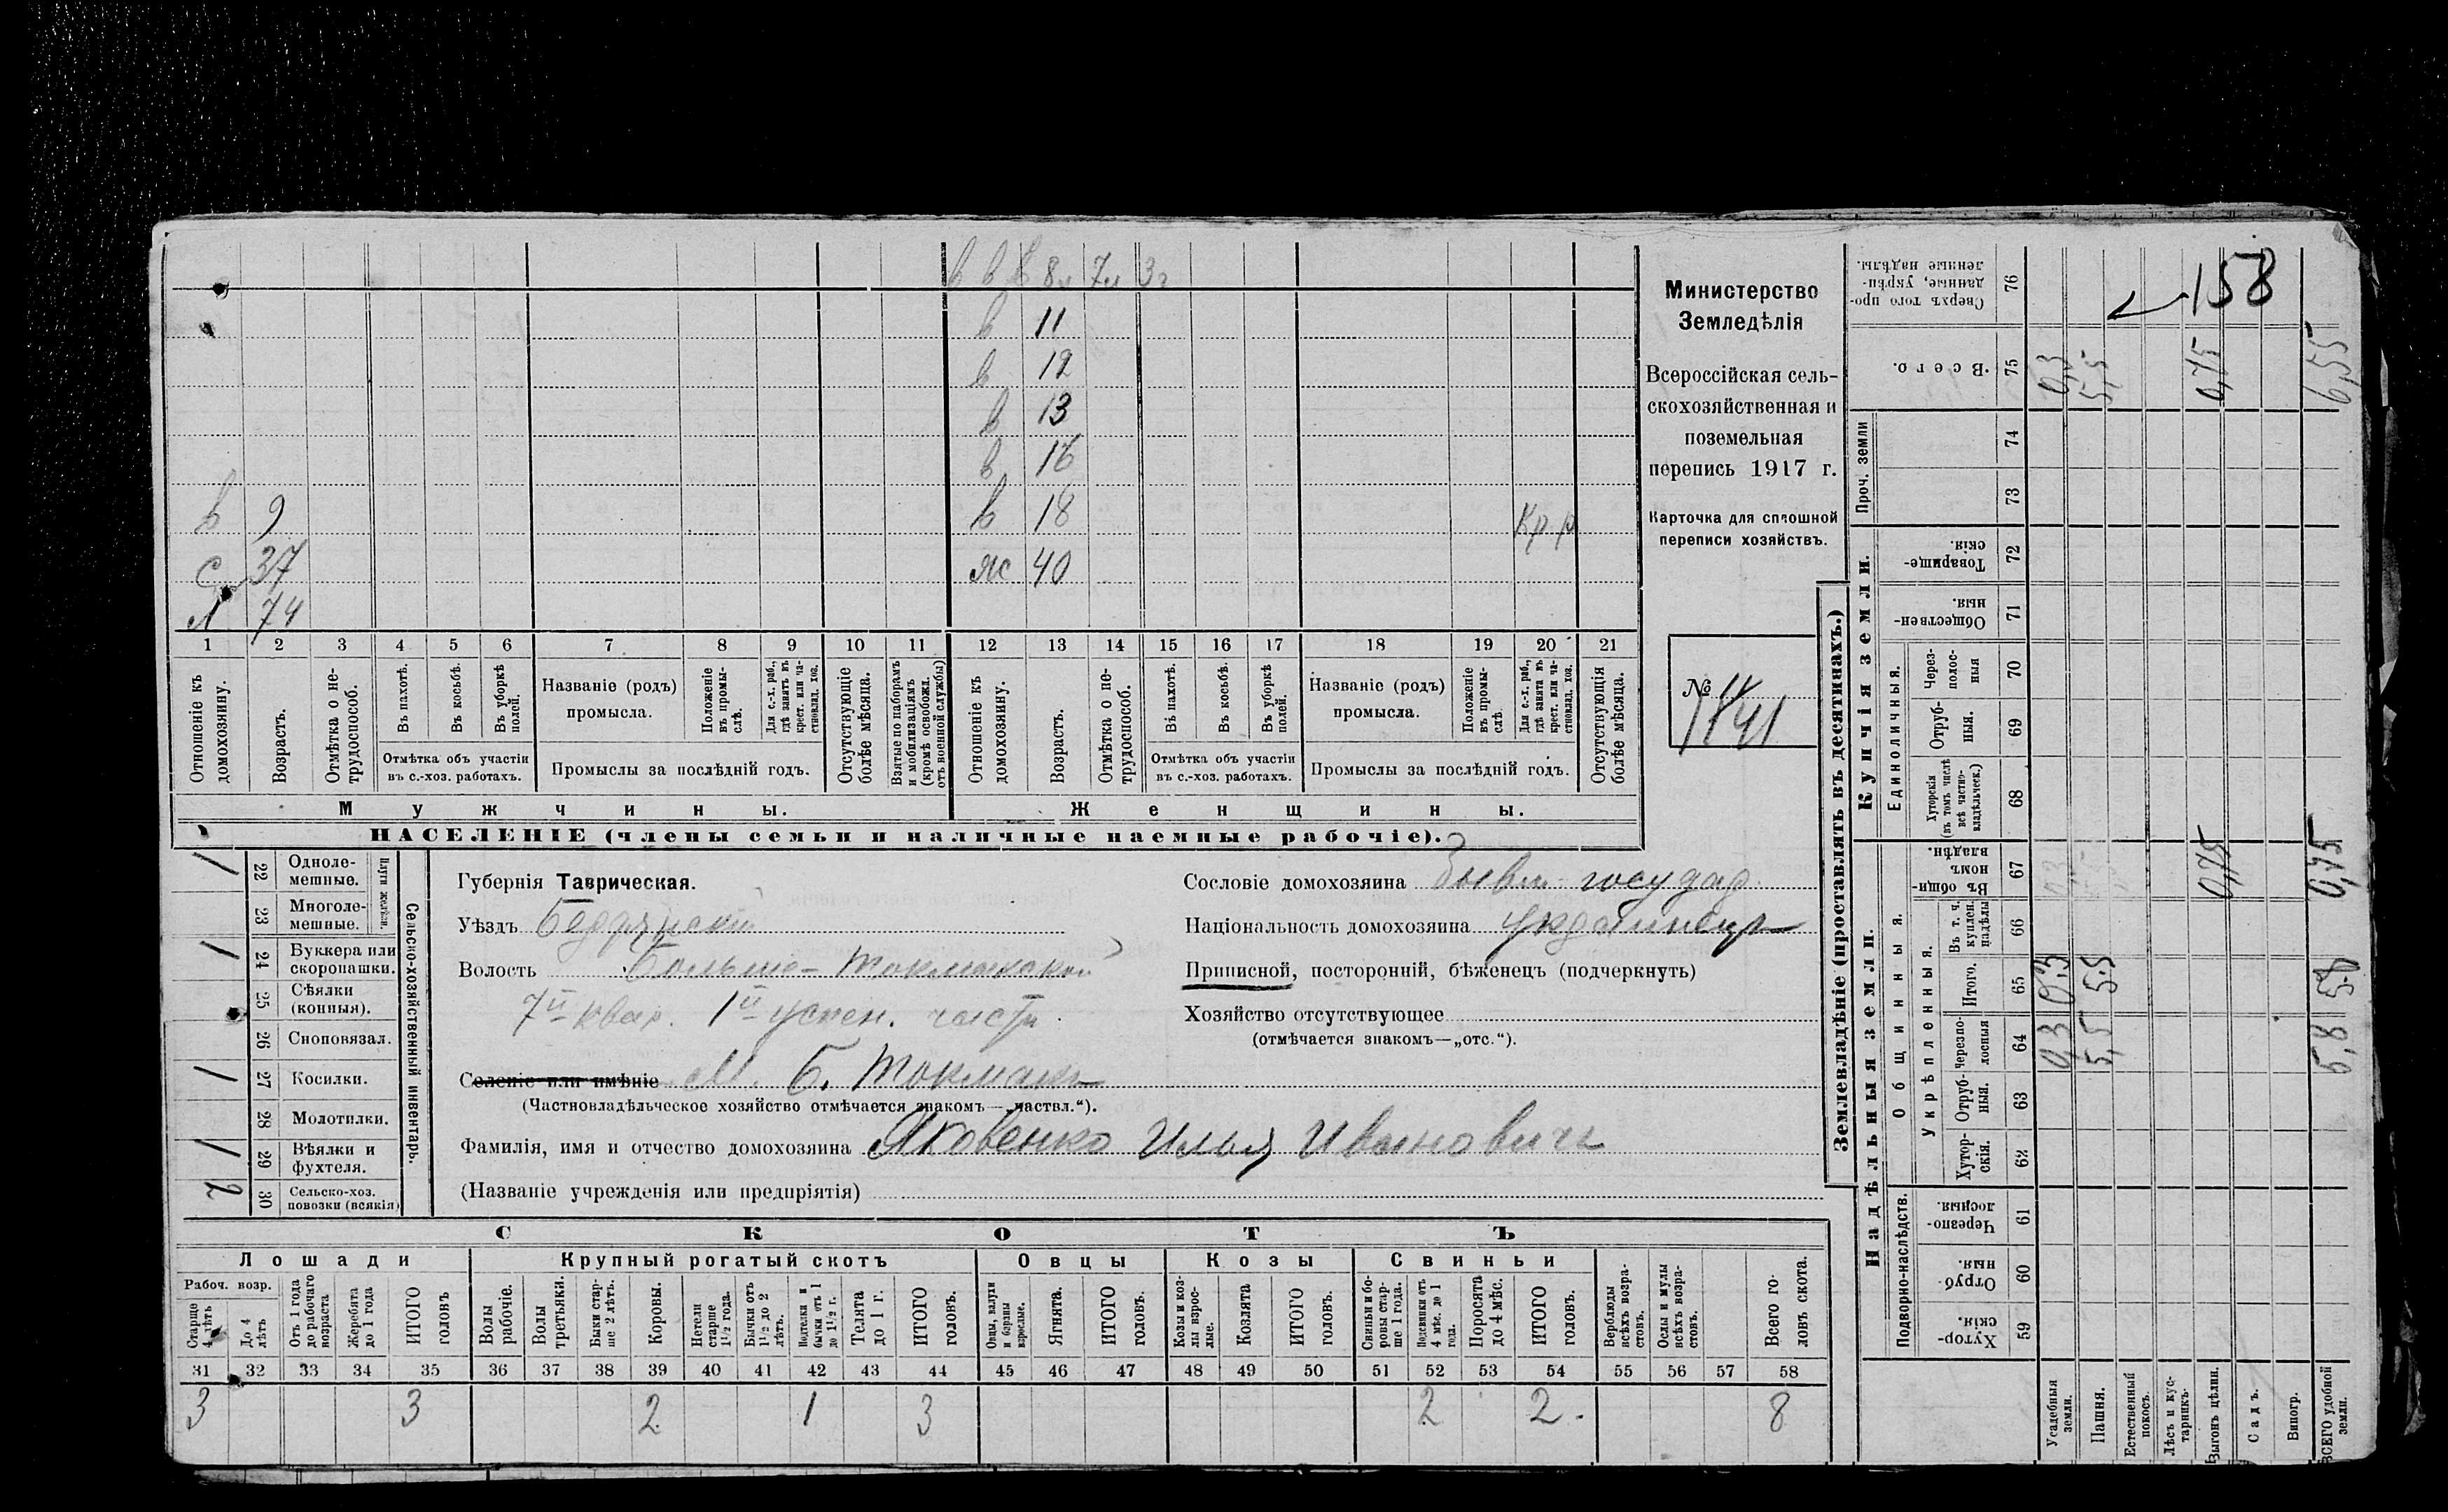 в в в 8 л 7 л 3 г
в 11
в 12
в 13
в 16
в 9 в 18 Кр. р
С 37 жс 40
Л 74
1 2 3 4 5 6 7 8 9 10 11 12 13 14 15 16 17 18 19 20 21
Отношеніе къ домохозяину.
Возрастъ.
Отмѣтка о не-
трудоспособ.
Въ пахотѣ.
Въ косьбѣ.
Въ уборкѣ
полей.
Отмѣтка объ участіи
въ с.-хоз. работахъ.
Названіе (родъ)
промысла.
Положеніе
въ промы-
слѣ.
Для с.-х. раб.,
гдѣ занятъ въ
крест. или ча-
стновлад. хоз.
Промыслы за послѣдній годъ.
Отсутствующіе
болѣе мѣсяца.
Взятые по наборамъ
и мобилизаціямъ
(кромѣ освобожд.
отъ военной службы)
Отношеніе къ
домохозяину.
Возрастъ.
Отмѣтка о не-
трудоспособ.
Въ пахотѣ.
Въ косьбѣ.
Въ уборкѣ
полей.
Отмѣтка объ участіи
въ с.-хоз. работахъ.
Названіе (родъ)
промысла.
Положеніе
въ промы-
слѣ.
Для с.-х. раб.,
гдѣ занята въ
крест. или ча-
стновлад. хоз.
Промыслы за послѣдній годъ.
Отсутствующія
болѣе мѣсяца.
Мужчины.
Женщины.
НАСЕЛЕНІЕ (члены семьи и наличные наемные рабочіе).
Министерство
Земледѣлія
Всероссійская сель-
скохозяйственная и
поземельная
перепись 1917 г.
Карточка для сплошной
переписи хозяйствъ.
№
1841
Сельско-хозяйственный инвентарь.
Плуги желѣзн.
22 Одноле-
мешные. 1
23 Многоле-
мешные.
24 Буккера или
скоропашки. 1
25 Сѣялки
(конныя).
26 Сноповязал.
27 Косилки. 1
28 Молотилки.
29 Вѣялки и
фухтеля. 1
30 Сельско-хоз.
повозки (всякія) 2
Губернія Таврическая.
Уѣздъ Бердянскій
Волость Больше-Токмакской
7й квар. 1й успен. части
Селеніе или имѣніе М. Б. Токмакъ
(Частновладѣльческое хозяйство отмѣчается знакомъ—„частвл.“).
Фамилія, имя и отчество домохозяина Яковенко Илья Ивановичъ
(Названіе учрежденія или предпріятія)
Сословіе домохозяина бывш. государ.
Національность домохозяина украинецъ
Приписной, посторонній, бѣженецъ (подчеркнуть)
Хозяйство отсутствующее
(отмѣчается знакомъ—„отс.“).
СКОТЪ
Лошади
Крупный рогатый скотъ
Овцы
Козы
Свиньи
Рабоч. возр.
Старше
4 лѣтъ
До 4
лѣтъ
Отъ 1 года
до рабочаго
возраста
Жеребята
до 1 года
ИТОГО
головъ
Волы
рабочіе.
Волы
третьяки.
Быки стар-
ше 2 лѣтъ.
Коровы.
Нетели
старше
1½ года.
Бычки отъ
1½ до 2
лѣтъ.
Нетелки и
бычки отъ 1
до 1½ г.
Телята
до 1 г.
ИТОГО
головъ.
Овцы, валухи
и бараны
взрослые.
Ягнята.
ИТОГО
головъ.
Козы и коз-
лы взрос-
лые.
Козлята
ИТОГО
головъ.
Свиньи и бо-
ровы стар-
ше 1 года.
Подсвинки отъ
4 мѣс. до 1
года.
Поросята
до 4 мѣс.
ИТОГО
головъ.
Верблюды
всѣхъ возра-
стовъ.
Ослы и мулы
всѣхъ возра-
стовъ.
Всего го-
ловъ скота.
31 32 33 34 35 36 37 38 39 40 41 42 43 44 45 46 47 48 49 50 51 52 53 54 55 56 57 58
3 3 2 1 3 2 2. 8
Землевладѣніе (проставлять въ десятинахъ.)
Надѣльныя земли.
Купчія земли.
Проч. земли
Подворно-наслѣдств.
Общинныя.
Укрѣпленныя.
Единоличныя.
59 Хутор-
скія.
60 Отруб-
ныя.
61 Черезпо-
лосныя.
62 Хутор-
скія.
63 Отруб-
ныя.
64 Черезпо-
лосныя
65 Итого.
66 Въ т. ч.
куплен.
надѣлы
67 Въ общи-
номъ
владѣн.
68 Хуторскія
(въ томъ числѣ
всѣ частно-
владѣльческ.)
69 Отруб-
ныя.
70 Через-
полос-
ныя
71 Обществен-
ныя.
72 Товарище-
скія.
73
74
75 Всего.
76 Сверхъ того про-
данные, укрѣп-
ленные надѣлы.
Усадебныя
земли. 0,3 0,3 0,3
Пашня. 5,5 5,5 5,5
Естественный
покосъ.
Лѣсъ и кус-
тарникъ.
Выгонъ цѣлин. 0,75 0,75
Садъ.
Виногр.
ВСЕГО удобной
земли. 5,8 5,8 0,75 6,55
158